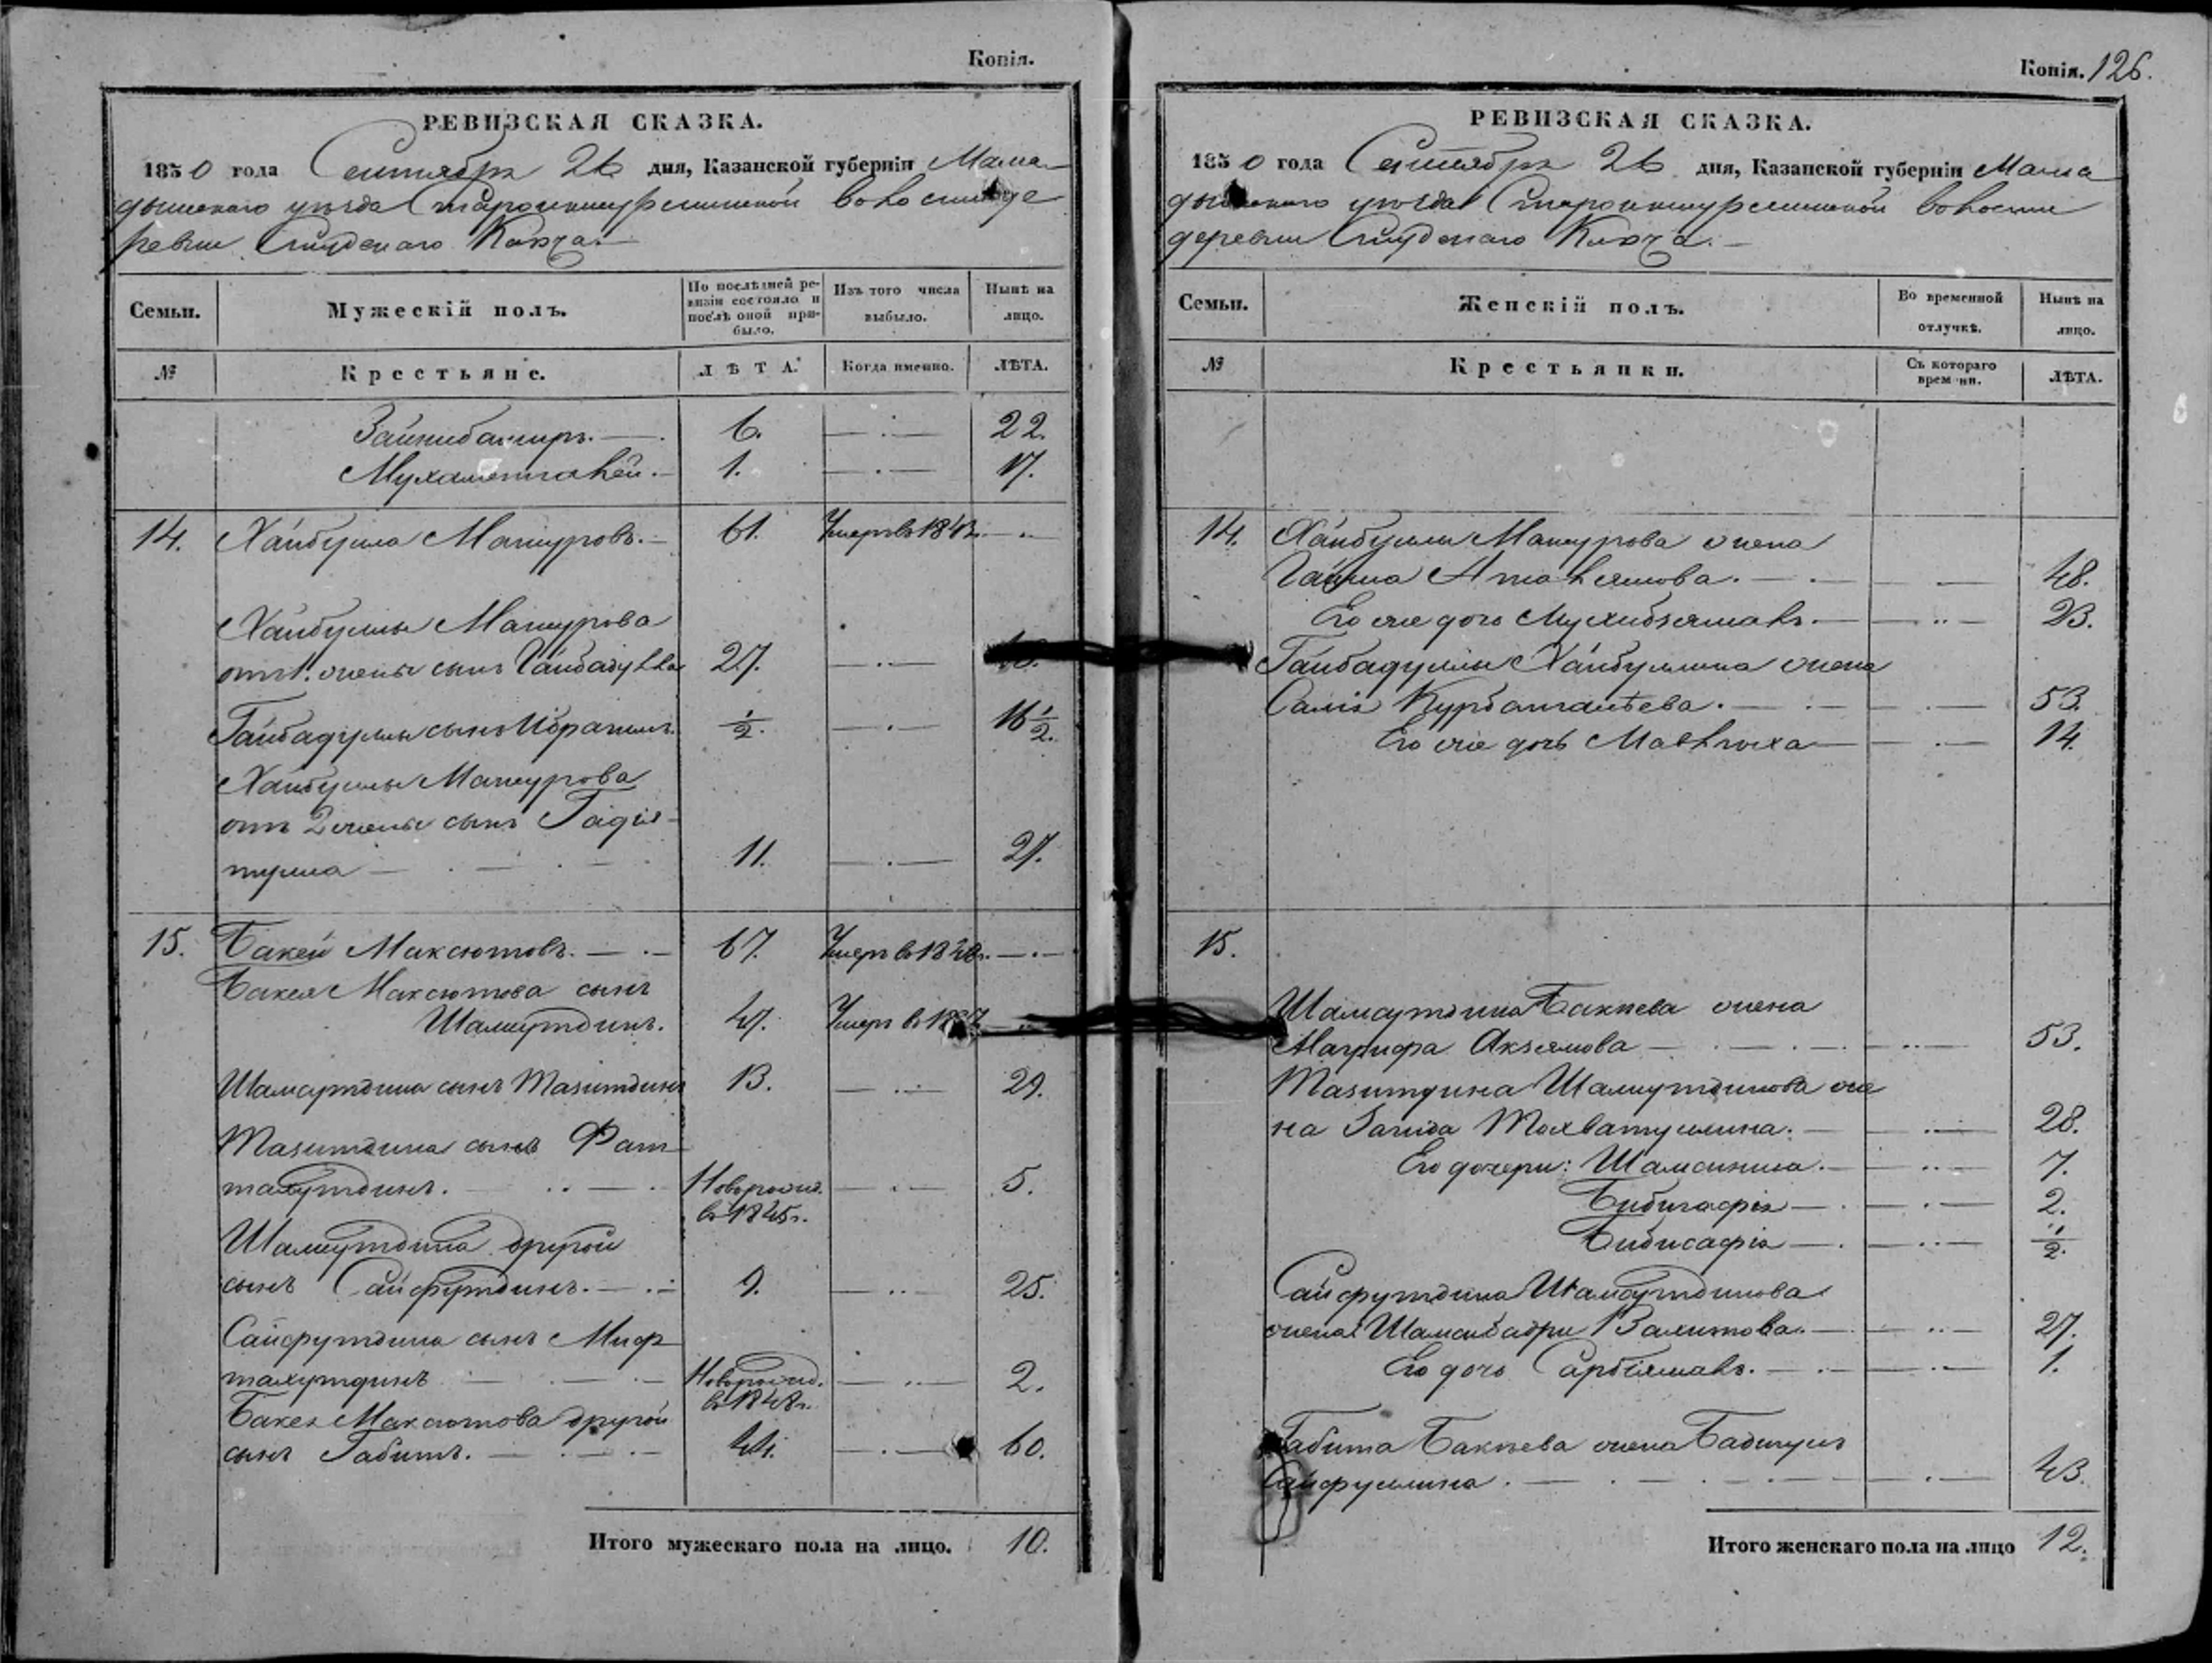 Копія.
РЕВИЗСКАЯ СКАЗКА.
1850 года Сентября 26 дня, Казанской губерніи Мама-
дышскаго уѣзда волости де
ревни Студенаго Ключа.
Семьи.
Мужескій полъ.
По послѣдней ре-
визіи состояло и
послѣ оной при-
было.
Изъ того числа
выбыло.
Нынѣ на
лицо.
№
Крестьяне.
ЛѢТА.
Когда именно.
ЛѢТА.
Зайнибаширъ. 6. 22.
1. 17.
14. Хайбулла Мансуровъ. 61. Умеръ въ
Хайбуллы Мансурова
отъ 1. жены сынъ Гайбадулла 27.
Гайбадуллы сынъ Ибрагимъ. ½. 16½.
Хайбуллы Мансурова
отъ 2 жены сынъ Гадія-
тулла 11. 27.
15. Бакей Максютовъ. 67. Умеръ въ
Бакея Максютова сынъ
Шамсутдинъ. 47. Умеръ въ
Шамсутдина сынъ Тазитдинъ 13. 29.
Тазитдина сынъ Фат-
тахутдинъ. Новорожд. 5.
въ 1845г.
Шамсутдина другой
сынъ Сайфутдинъ. 9. 25.
Сайфутдина сынъ Миф
тахутдинъ Новорожд. 2.
въ 1848г.
Бакея Максютова другой
сынъ Габитъ. 44. 60.
Итого мужескаго пола на лицо. 10.
Копія. 126.
РЕВИЗСКАЯ СКАЗКА.
1850 года Сентября 26 дня, Казанской губерніи Мама
дышскаго уѣзда волости
деревни Студенаго Ключа.
Семьи.
Женскій полъ.
Во временной
отлучкѣ.
Нынѣ на
лицо.
№
Крестьянки.
Съ котораго
времени.
ЛѢТА.
14. Хайбуллы Мансурова жена
48.
Его же дочь 23.
Гайбадуллы Хайбуллина жена
53.
Его же дочь 14.
15.
Шамсутдина Бакѣева жена
Магрифа Акзямова 53.
Тазитдина Шамсутдинова же
на 28.
Его дочери: 7.
2.
Бибисафія ½.
Сайфутдина Шамсутдинова
жена Шамсибадри Валитова. 27.
Его дочь 1.
Габита Бакѣева жена
Сайфуллина. 43.
Итого женскаго пола на лицо 12.